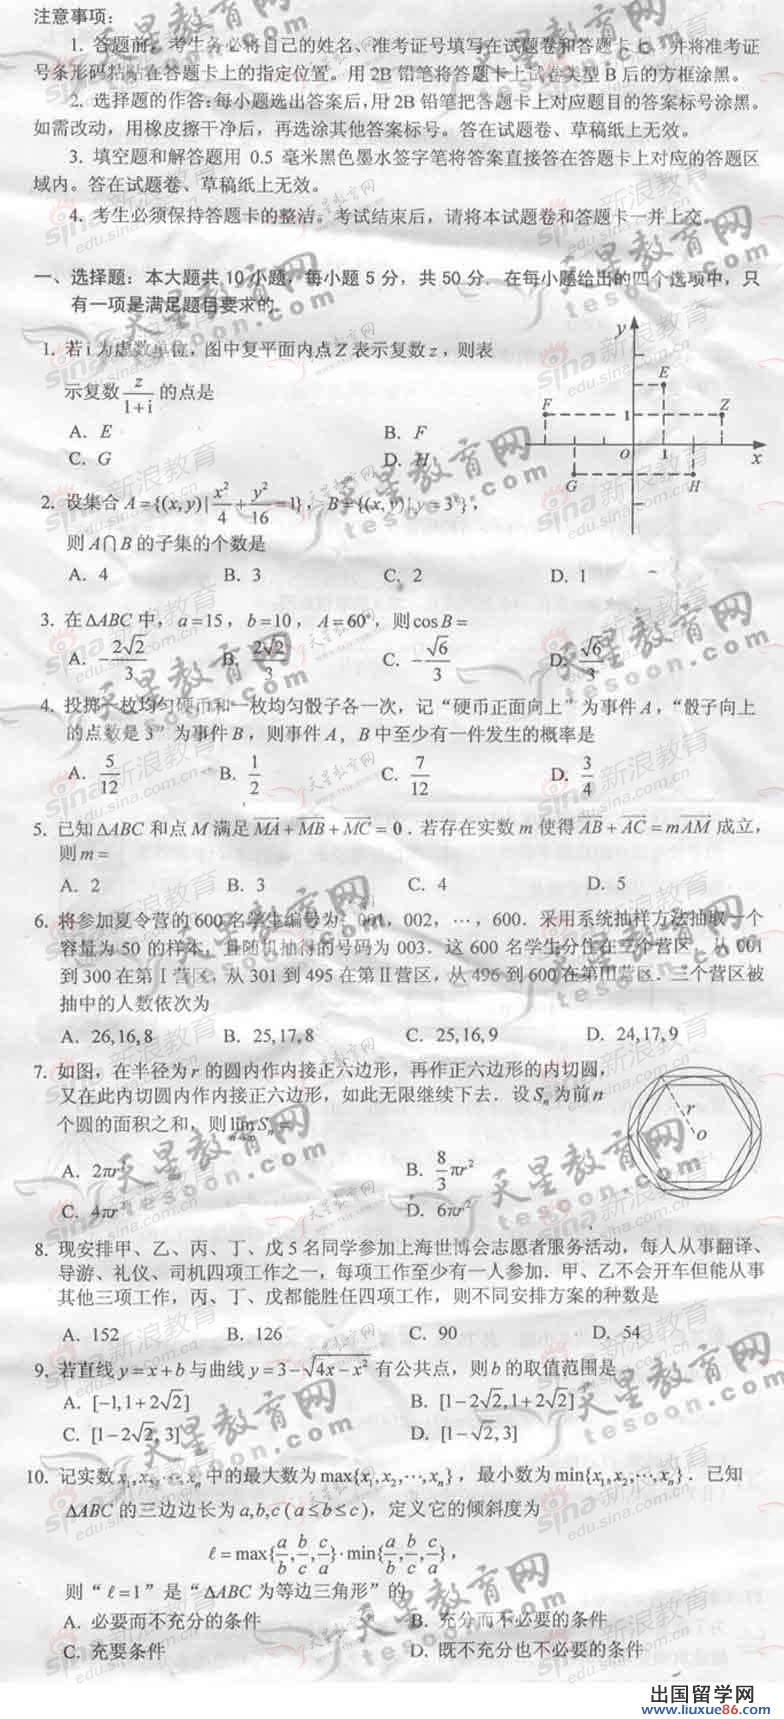 注意事项：
1. 答题前，考生务必将自己的姓名、准考证号填写在试题卷和答题卡上，并将准考证
号条形码粘贴在答题卡上的指定位置。用 2B 铅笔将答题卡上试卷类型 B 后的方框涂黑。
2. 选择题的作答：每小题选出答案后，用 2B 铅笔把答题卡上对应题目的答案标号涂黑。
如需改动，用橡皮擦干净后，再选涂其他答案标号。答在试题卷、草稿纸上无效。
3. 填空题和解答题用 0.5 毫米黑色墨水签字笔将答案直接答在答题卡上对应的答题区
域内。答在试题卷、草稿纸上无效。
4. 考生必须保持答题卡的整洁。考试结束后，请将本试题卷和答题卡一并上交。
一、选择题：本大题共 10 小题，每小题 5 分，共 50 分．在每小题给出的四个选项中，只
有一项是满足题目要求的.
1. 若 i 为虚数单位，图中复平面内点 Z 表示复数 z，则表
示复数 z/(1+i) 的点是
A. E B. F
C. G D. H
y
F E Z
1
O 1 x
G H
2. 设集合 A={(x,y)|x²/4+y²/16=1}，B={(x,y)|y=3ˣ}，
则 A∩B 的子集的个数是
A. 4 B. 3 C. 2 D. 1
3. 在 ΔABC 中，a=15，b=10，A=60°，则 cos B =
A. -2√2/3 B. 2√2/3 C. -√6/3 D. √6/3
4. 投掷一枚均匀硬币和一枚均匀骰子各一次，记“硬币正面向上”为事件 A，“骰子向上
的点数是 3”为事件 B，则事件 A，B 中至少有一件发生的概率是
A. 5/12 B. 1/2 C. 7/12 D. 3/4
5. 已知 ΔABC 和点 M 满足 MA+MB+MC=0．若存在实数 m 使得 AB+AC=mAM 成立，
则 m =
A. 2 B. 3 C. 4 D. 5
6. 将参加夏令营的 600 名学生编号为：001，002，…，600．采用系统抽样方法抽取一个
容量为 50 的样本，且随机抽得的号码为 003．这 600 名学生分住在三个营区，从 001
到 300 在第 I 营区，从 301 到 495 在第 II 营区，从 496 到 600 在第 III 营区．三个营区被
抽中的人数依次为
A. 26,16,8 B. 25,17,8 C. 25,16,9 D. 24,17,9
7. 如图，在半径为 r 的圆内作内接正六边形，再作正六边形的内切圆，
又在此内切圆内作内接正六边形，如此无限继续下去．设 Sₙ 为前 n
个圆的面积之和，则 lim n→∞ Sₙ =
A. 2πr² B. 8/3 πr²
C. 4πr² D. 6πr²
r
o
8. 现安排甲、乙、丙、丁、戊 5 名同学参加上海世博会志愿者服务活动，每人从事翻译、
导游、礼仪、司机四项工作之一，每项工作至少有一人参加．甲、乙不会开车但能从事
其他三项工作，丙、丁、戊都能胜任四项工作，则不同安排方案的种数是
A. 152 B. 126 C. 90 D. 54
9. 若直线 y=x+b 与曲线 y=3-√(4x-x²) 有公共点，则 b 的取值范围是
A. [-1,1+2√2] B. [1-2√2,1+2√2]
C. [1-2√2,3] D. [1-√2,3]
10. 记实数 x₁,x₂,…,xₙ 中的最大数为 max{x₁,x₂,…,xₙ}，最小数为 min{x₁,x₂,…,xₙ}．已知
ΔABC 的三边边长为 a,b,c (a≤b≤c)，定义它的倾斜度为
ℓ=max{a/b,b/c,c/a}·min{a/b,b/c,c/a}，
则“ℓ=1”是“ΔABC 为等边三角形”的
A. 必要而不充分的条件 B. 充分而不必要的条件
C. 充要条件 D. 既不充分也不必要的条件
出国留学网
www.liuxue86.com